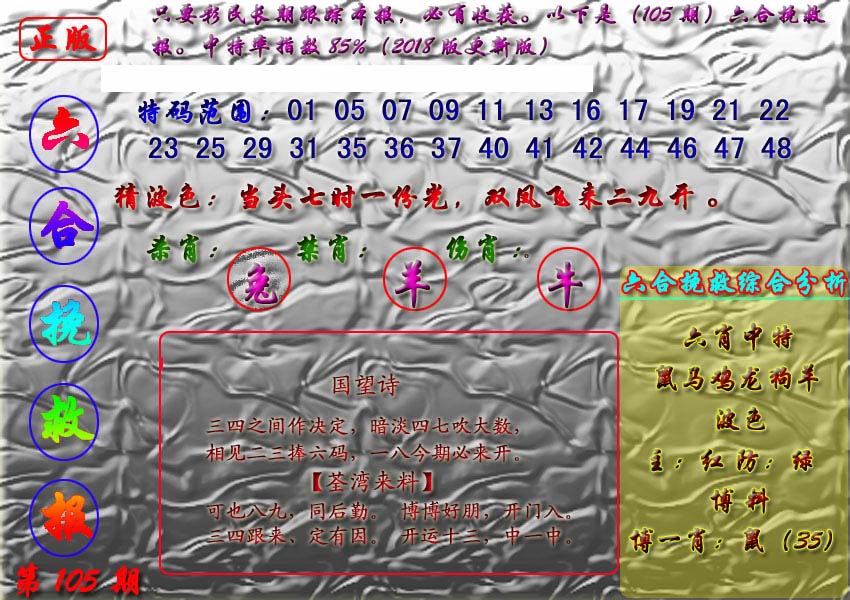 正版
只要彩民长期跟踪本报，必有收获。以下是（105期）六合挽救
报。中特率指数85%（2018版更新版）
六
合
挽
救
报
第105期
特码范围：01 05 07 09 11 13 16 17 19 21 22
23 25 29 31 35 36 37 40 41 42 44 46 47 48
猜波色：当头七时一份光，双凤飞来二九开。
杀肖：兔 禁肖：羊 伤肖：牛
国望诗
三四之间作决定，暗淡四七吹大数，
相见二三捧六码，一八今期必来开。
【荃湾来料】
可也八九，同后勤。 博博好朋，开门入。
三四跟来、定有因。 开运十三，中一中。
六合挽救综合分析
六肖中特
鼠马鸡龙狗羊
波色
主：红防：绿
博料
博一肖：鼠（35）